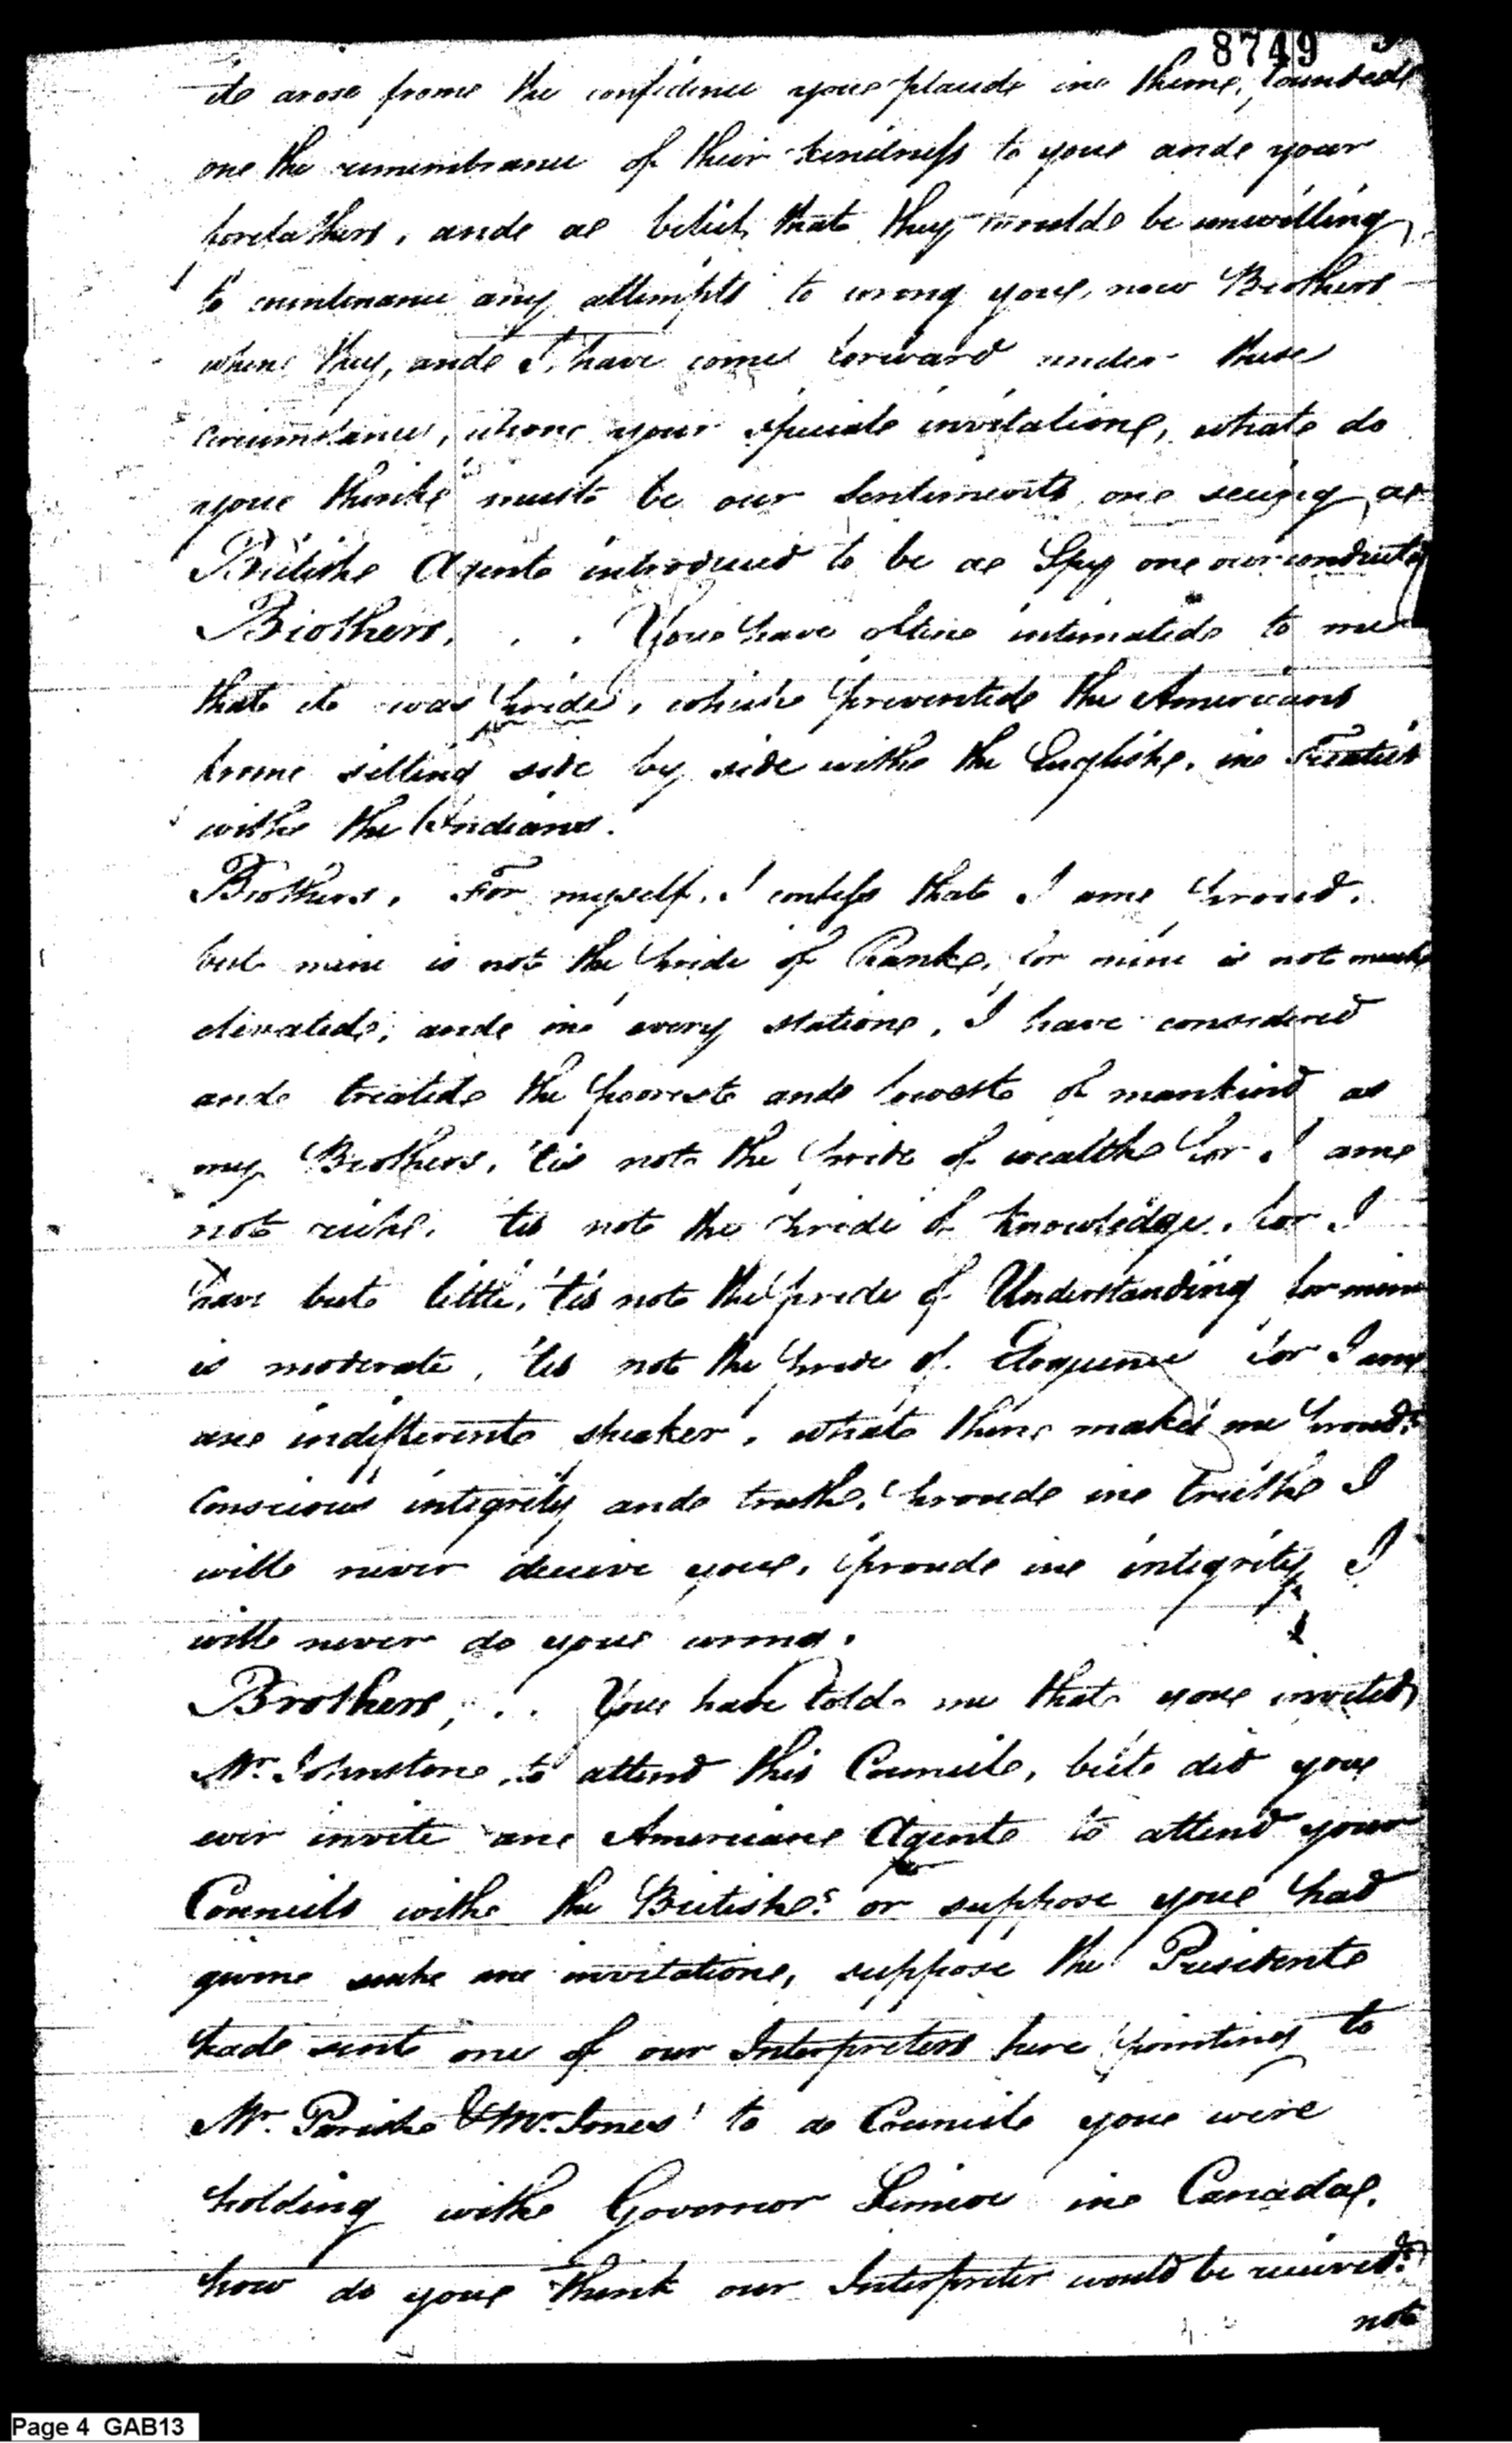 8749
it arose from the confidence you placed in them, founded
on the remembrance of their kindness to you and your
forefathers, and a belief that they would be unwilling
to countenance any attempts to wrong you, now Brothers
when they, and I, have come forward under these
circumstances, upon your special invitation, what do
you think must be our Sentiments on seeing a
British Agent introduced to be a Spy on our conduct
Brothers, . . You have often intimated to me
that it was pride, which prevented the Americans
from sitting side by side with the English, in Treaties
with the Indians.
Brothers, For myself, I confess that I am proud,
but mine is not the pride of Rank, for mine is not much
elevated, and in every station, I have considered
and treated the poorest and lowest of mankind as
my Brothers, 'tis not the pride of wealth for I am
not rich, 'tis not the pride of knowledge, for I
have but little, 'tis not the pride of Understanding for mine
is moderate, 'tis not the pride of Eloquence for I am
an indifferent speaker, what then makes me proud?
Conscious integrity and truth, proud in truth I
will never deceive you, proud in integrity I
will never do you wrong.
Brothers, . . You have told me that you invited
Mr. Johnston, to attend this Council, but did you
ever invite an American Agent to attend your
Councils with the British? or suppose you had
given such an invitation, suppose the President
had sent one of our Interpreters here pointing to
Mr. Parish & Mr. Jones' to a Council you were
holding with Governor Simcoe in Canada,
how do you think our Interpreter would be received?
not
Page 4 GAB13